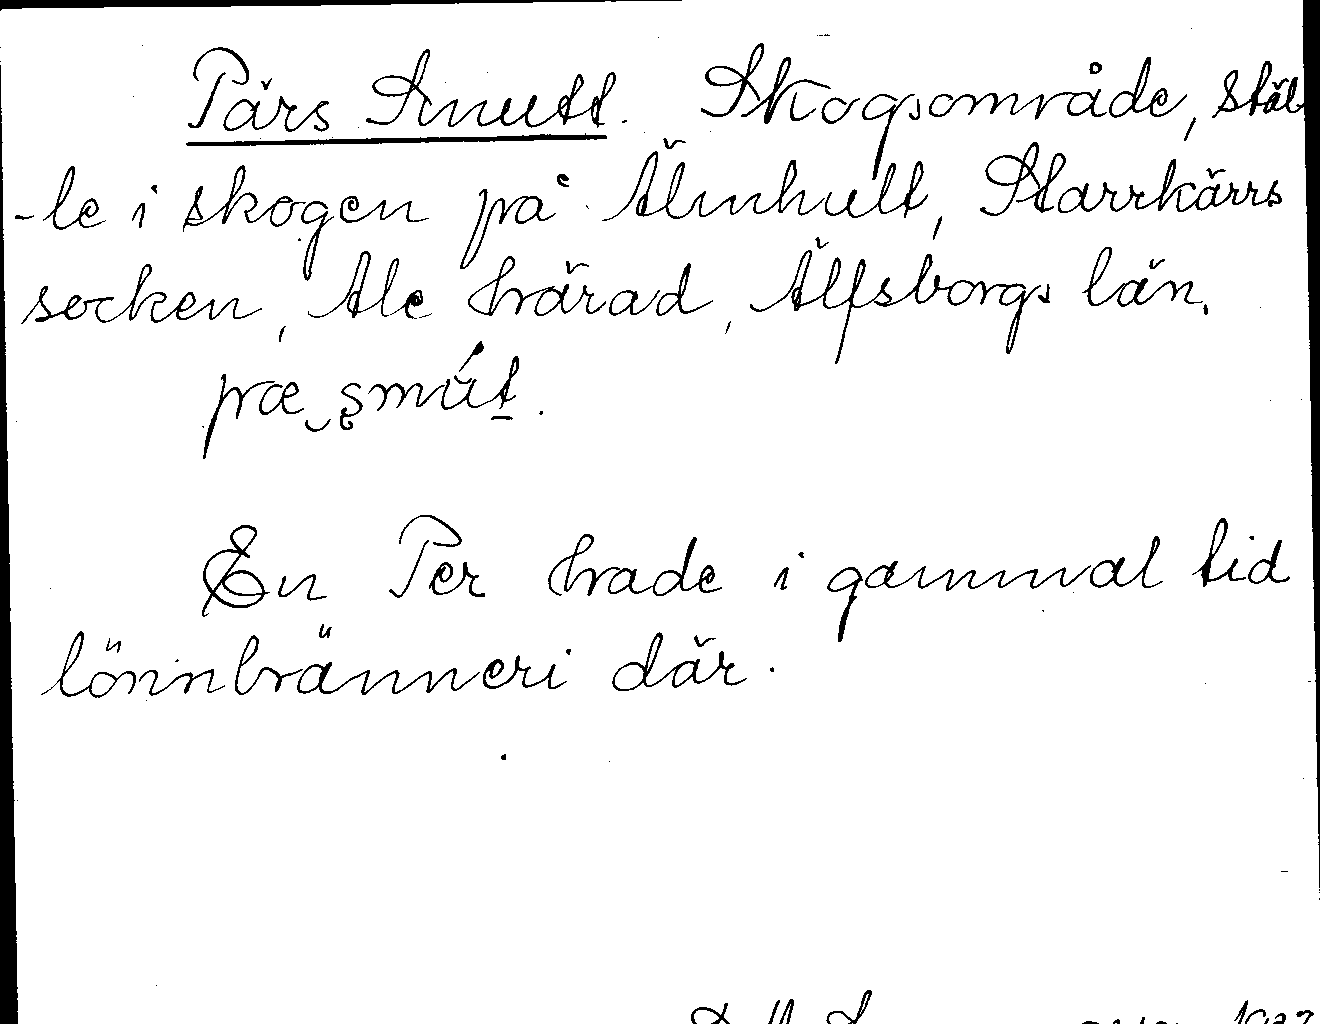 Pärs Smutt. Skogsområde, Stäl-
-le i skogen på Älmhult, Starrkärrs
socken, Ale härad, Älfsborgs län.
En Per hade i gammal tid
lönnbränneri där.